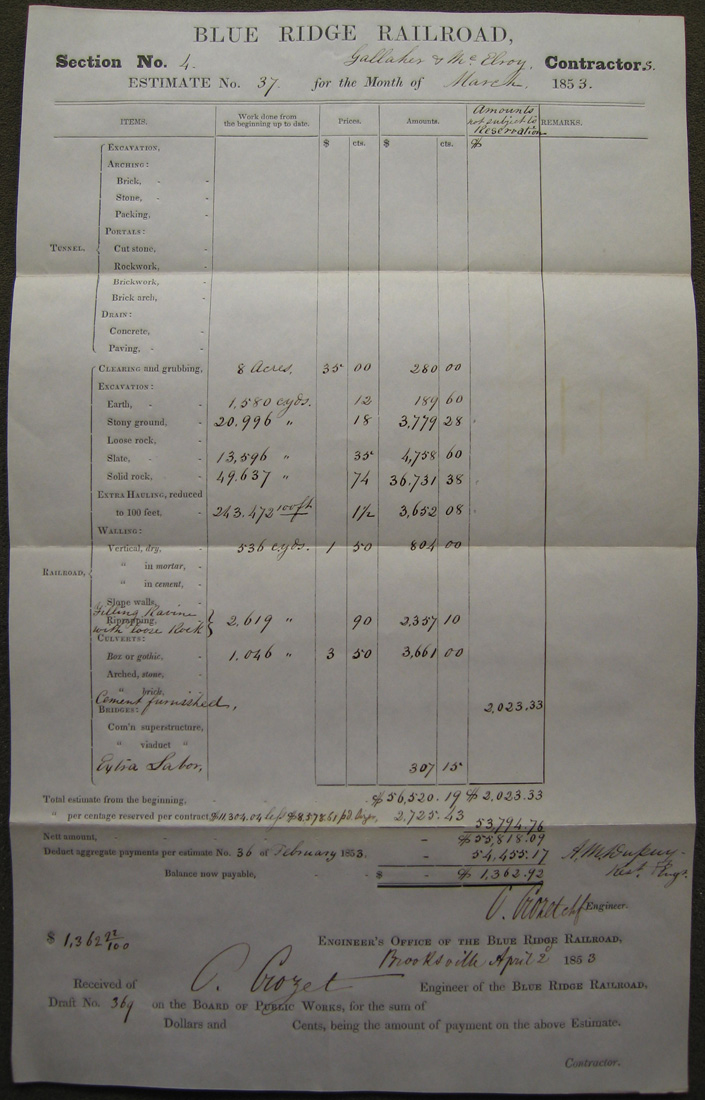 BLUE RIDGE RAILROAD,
Section No. 4. Gallaher & McElroy, Contractors.
ESTIMATE No. 37. for the Month of March, 1853.
ITEMS. Work done from the beginning up to date. Prices. Amounts. Amounts not subject to Reservation REMARKS.
$ cts. $ cts. $
TUNNEL,
EXCAVATION,
ARCHING:
Brick, - -
Stone, - -
Packing, -
PORTALS:
Cut stone, -
Rockwork, -
Brickwork, -
Brick arch, -
DRAIN:
Concrete, -
Paving, - -
RAILROAD,
CLEARING and grubbing, 8 Acres, 35 00 280 00
EXCAVATION:
Earth, - - 1,580 cyds. 12 189 60
Stony ground, - 20,996 " 18 3,779 28
Loose rock, -
Slate, - - 13,596 " 35 4,758 60
Solid rock, - 49.637 " 74 36.731 38
EXTRA HAULING, reduced
to 100 feet, - 243.472 100ft 1½ 3,652 08
WALLING:
Vertical, dry, - 536 cyds. 1 50 804 00
" in mortar, -
" in cement, -
Slope walls, -
Filling Ravine
Riprapping, 2.619 " 90 2,357 10
with loose Rock
CULVERTS:
Box or gothic, - 1.046 " 3 50 3,661 00
Arched, stone, -
" brick, -
Cement furnished,
BRIDGES: 2,023.33
Com'n superstructure,
" viaduct "
Extra Labor, 307 15
Total estimate from the beginning, - $56,520.19 $2,023.33
" per centage reserved per contract, $11,304.04 less $8,578.61 pd. 2,725.43 53,794.76
Nett amount, - - - - - $55,818.09
Deduct aggregate payments per estimate No. 36 of February 1853. - 54,455.17 A. M. Dupuy.
Balance now payable, - - $ - $1,362.92 Rest. Engr.
C. Crozet chf Engineer.
$ 1,362 92/100 ENGINEER'S OFFICE OF THE BLUE RIDGE RAILROAD,
Brooksville April 2d 1853
Received of C. Crozet Engineer of the BLUE RIDGE RAILROAD,
Draft No. 369 on the BOARD OF PUBLIC WORKS, for the sum of
Dollars and Cents, being the amount of payment on the above Estimate.
Contractor.